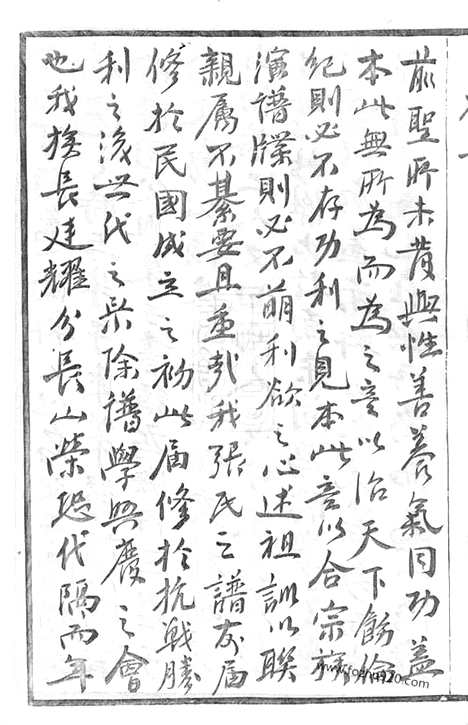 前聖所未發與性善養氣同功蓋
本此無所為而為之意以治天下飭倫
紀則必不存功利之見本此意以合宗族
演譜牒則必不萌利欲之心述祖訓以聯
親屬不綦要且重哉我張氏之譜友屆
修於民國成立之初此屆修於抗戰勝
利之後世代之眾除譜學興廢之會
也我族長廷耀分長山榮恐代隔而年
www.fozhu920.com